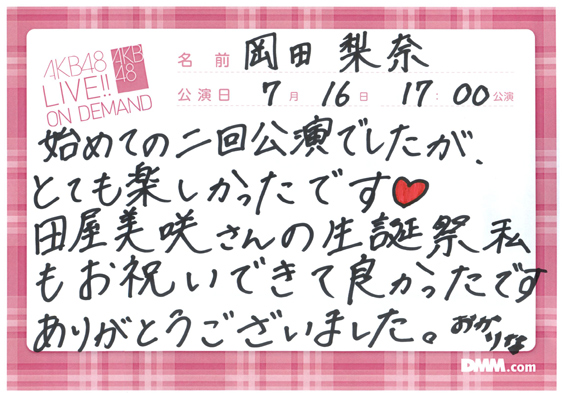 AKB48
LIVE!!
ON DEMAND
AKB
48
名前 岡田 梨奈
公演日 7月16日 17:00公演
始めての二回公演でしたが、
とても楽しかったです♥
田屋美咲さんの生誕祭私
もお祝いできて良かったです
ありがとうございました。おかりな
DMM.com